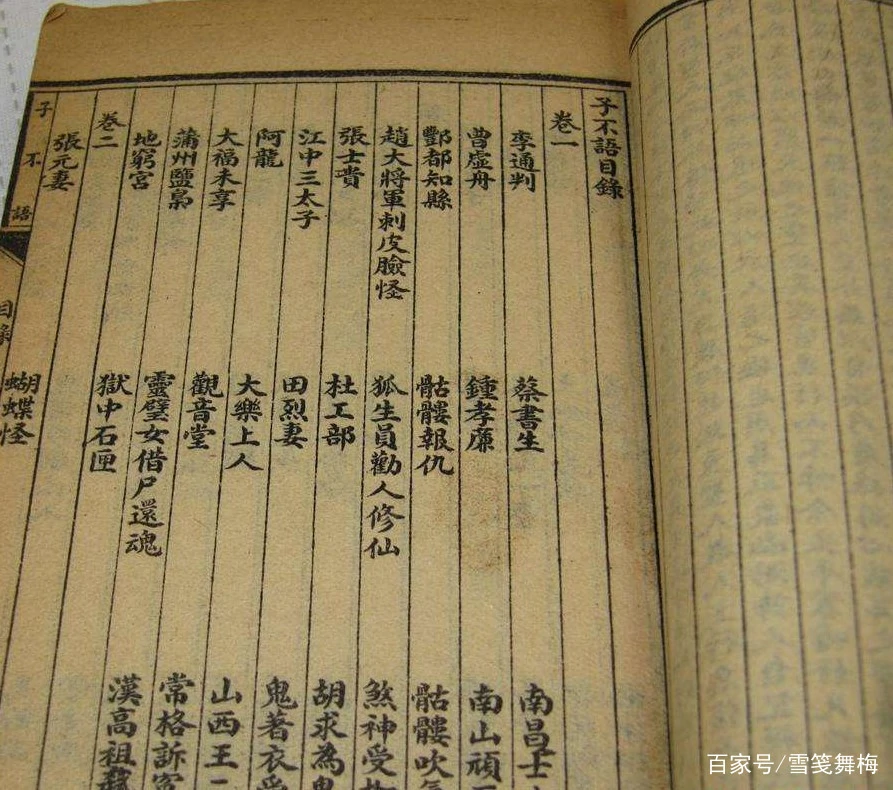 子不語目錄
卷一
李通判 蔡書生 南昌士
曹虛舟 鍾孝廉 南山頑
酆都知縣 骷髏報仇 骷髏吹氣
趙大將軍刺皮臉怪 狐生員勸人修仙 煞神受
張士貴 杜工部 胡求為鬼
江中三太子 田烈妻 鬼著衣受
阿龍 大樂上人 山西王二
大福未享 觀音堂 常格訴冤
蒲州鹽梟 靈璧女借尸還魂 漢高祖
地窮宮 獄中石匣
卷二
張元妻 蝴蝶怪
子不語 目錄
百家号/雪笺舞梅